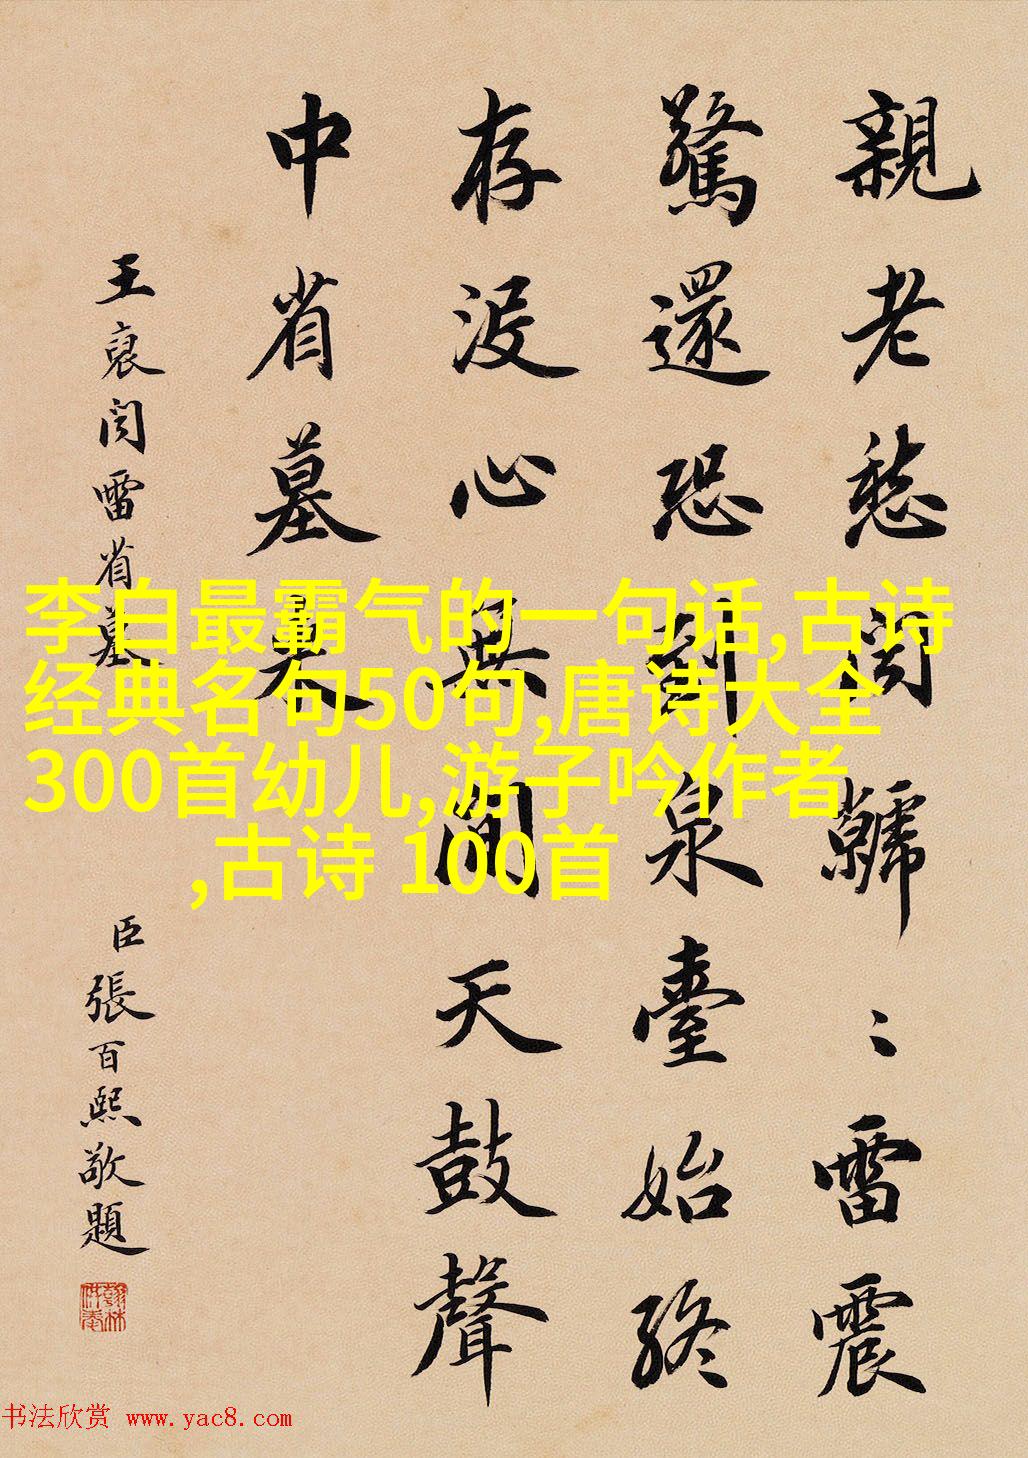 親老愁聞虩〻雷震
驚還恐到泉臺始終
存沒心無間天鼓聲
中省墓來
王裒聞雷省墓
臣張百熙敬題
翰林供奉
李白最霸气的一句话,古诗
经典名句50句,唐诗大全
300首幼儿,游子吟作者
,古诗 100首
书法欣赏 www.yac8.com